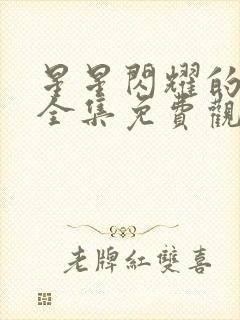 星星閃耀的
全集免費觀
老牌紅雙喜